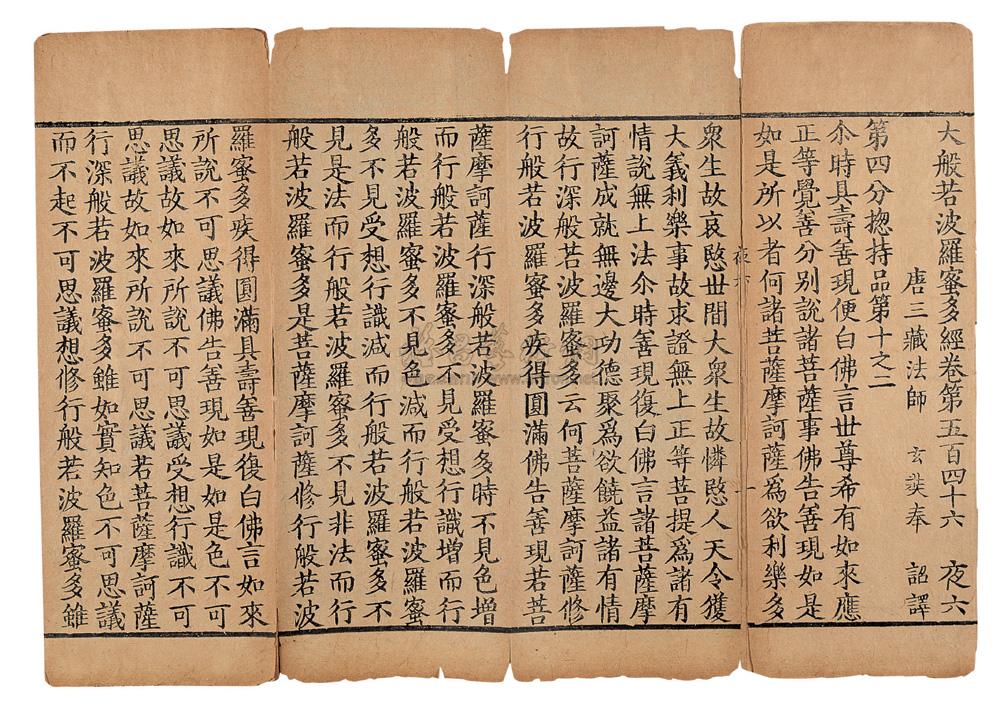 大般若波羅蜜多經卷第五百四十六 夜六
唐三藏法師 玄奘奉 詔譯
第四分揔持品第十之二
尒時具壽善現便白佛言世尊希有如來應
正等覺善分別說諸菩薩事佛告善現如是
如是所以者何諸菩薩摩訶薩爲欲利樂多
夜六 一
衆生故哀愍世間大衆生故憐愍人天令獲
大義利樂事故求證無上正等菩提爲諸有
情說無上法尒時善現復白佛言諸菩薩摩
訶薩成就無邊大功德聚爲欲饒益諸有情
故行深般若波羅蜜多云何菩薩摩訶薩修
行般若波羅蜜多疾得圓滿佛告善現若菩
薩摩訶薩行深般若波羅蜜多時不見色增
而行般若波羅蜜多不見受想行識增而行
般若波羅蜜多不見色減而行般若波羅蜜
多不見受想行識減而行般若波羅蜜多不
見是法而行般若波羅蜜多不見非法而行
般若波羅蜜多是菩薩摩訶薩修行般若波
羅蜜多疾得圓滿具壽善現復白佛言如來
所說不可思議佛告善現如是如是色不可
思議故如來所說不可思議受想行識不可
思議故如來所說不可思議若菩薩摩訶薩
行深般若波羅蜜多雖如實知色不可思議
而不起不可思議想修行般若波羅蜜多雖